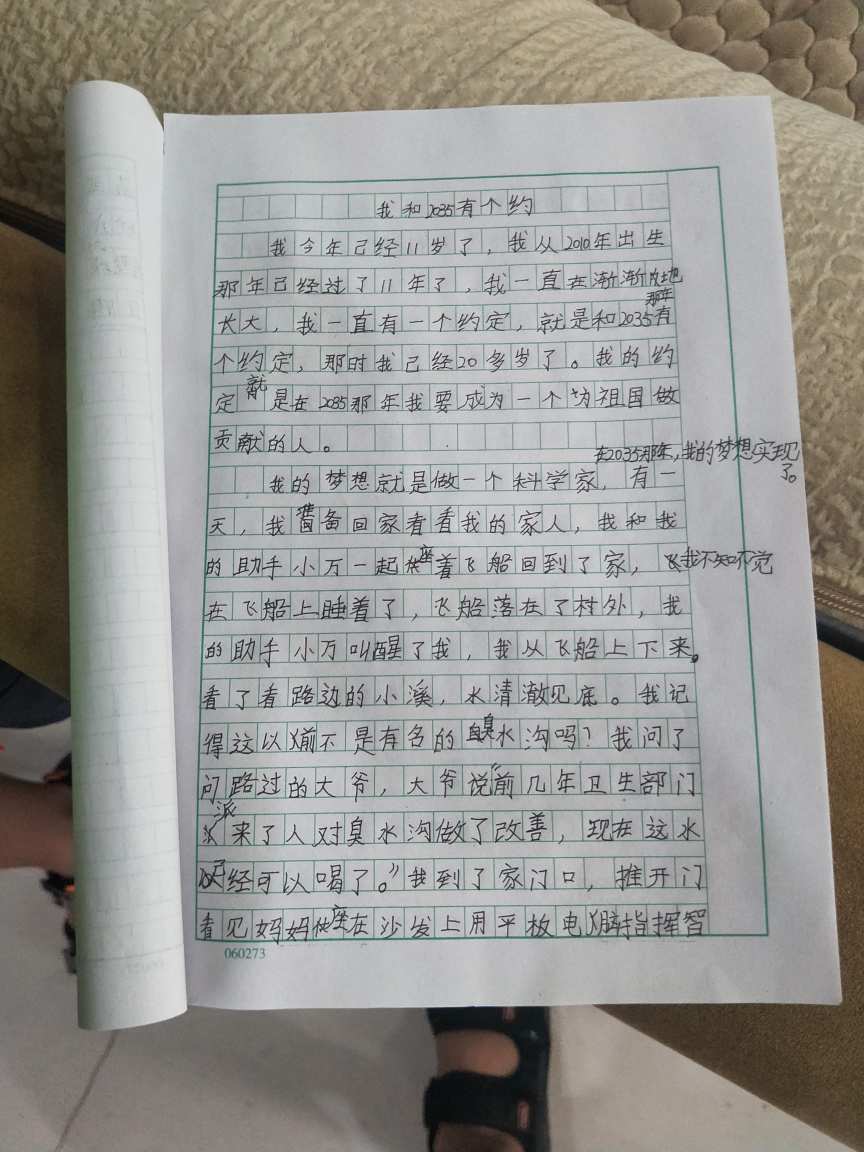 我和2035有个约
我今年已经11岁了，我从2010年出生
那年已经过了11年了，我一直在渐渐地
长大，我一直有一个约定，就是和2035那年有
个约定，那时我已经20多岁了。我的约
定就是在2035那年我要成为一个为祖国做
贡献的人。
在2035那年，我的梦想实现了。
我的梦想就是做一个科学家，有一
天，我准备回家看看我的家人，我和我
的助手小万一起座着飞船回到了家，我不知不觉
在飞船上睡着了，飞船落在了村外，我
的助手小万叫醒了我，我从飞船上下来。
看了看路边的小溪，水清澈见底。我记
得这以前不是有名的臭水沟吗？我问了
问路过的大爷，大爷说“前几年卫生部门
派来了人对臭水沟做了改善，现在这水
已经可以喝了。”我到了家门口，推开门
看见妈妈座在沙发上用平板电脑指挥智
060273